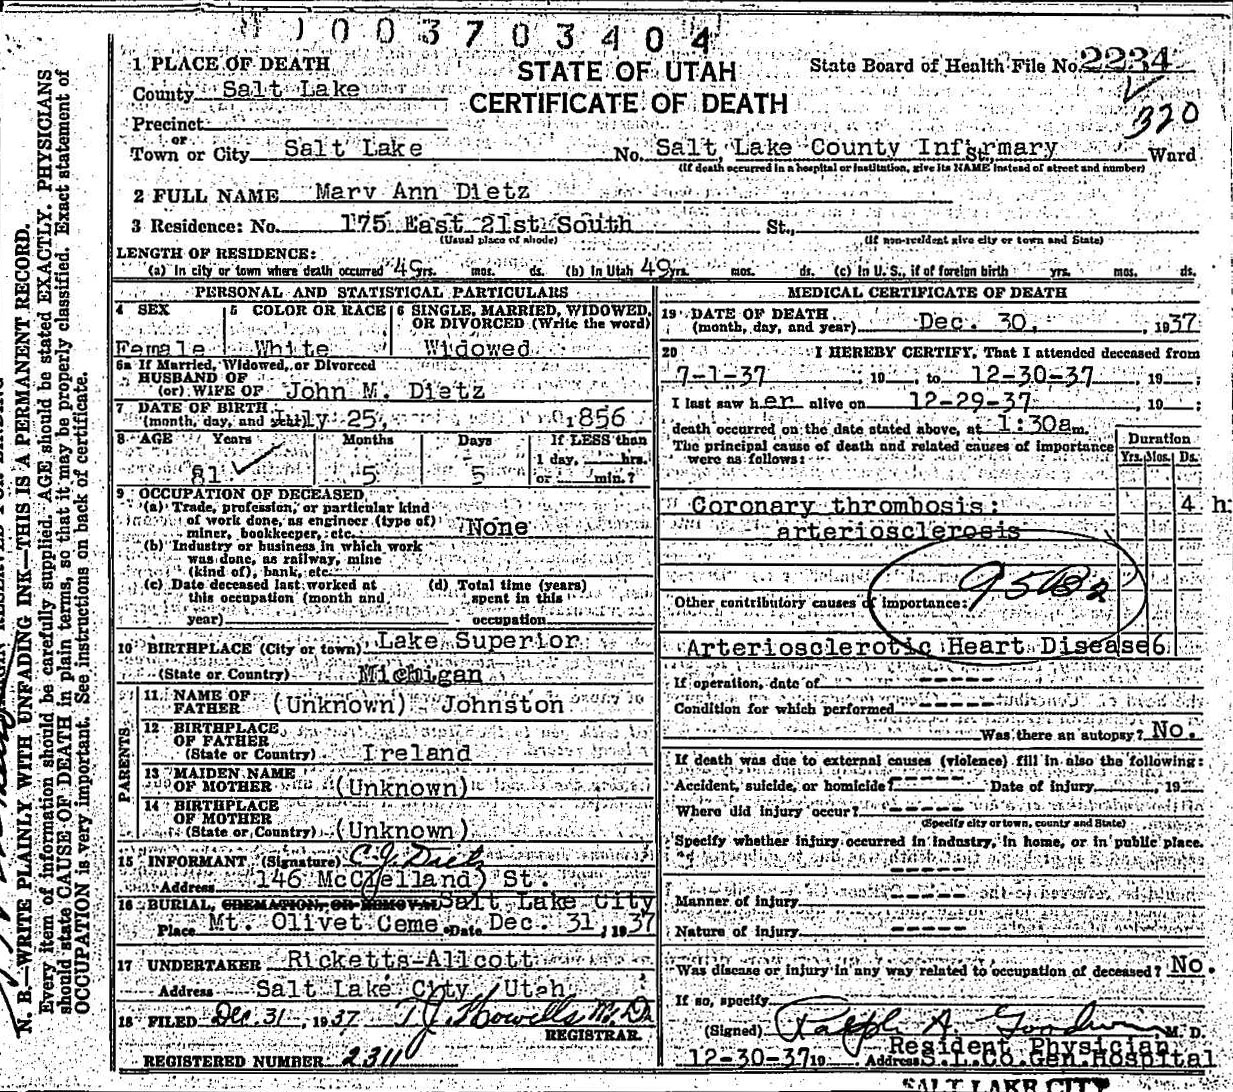 1003703404
STATE OF UTAH
CERTIFICATE OF DEATH
State Board of Health File No. 2234
320
1 PLACE OF DEATH
County Salt Lake
Precinct
or
Town or City Salt Lake No. Salt Lake County Infirmary St., Ward
(If death occurred in a hospital or institution, give its NAME instead of street and number)
2 FULL NAME Mary Ann Dietz
3 Residence: No. 175 East 21st South St.,
(Usual place of abode) (If non-resident give city or town and State)
LENGTH OF RESIDENCE:
(a) In city or town where death occurred 49 yrs. mos. ds. (b) In Utah 49 yrs. mos. ds. (c) In U. S., if of foreign birth yrs. mos. ds.
PERSONAL AND STATISTICAL PARTICULARS
4 SEX 5 COLOR OR RACE 6 SINGLE, MARRIED, WIDOWED, OR DIVORCED (Write the word)
Female White Widowed
6a If Married, Widowed, or Divorced
HUSBAND OF
(or) WIFE OF John M. Dietz
7 DATE OF BIRTH
(month, day, and year) July 25, 1856
8 AGE Years Months Days If LESS than
1 day, hrs.
81 5 5 or min.?
9 OCCUPATION OF DECEASED
(a) Trade, profession, or particular kind
of work done, as engineer (type of)
miner, bookkeeper, etc. None
(b) Industry or business in which work
was done, as railway, mine
(kind of), bank, etc.
(c) Date deceased last worked at (d) Total time (years)
this occupation (month and spent in this
year) occupation
10 BIRTHPLACE (City or town) Lake Superior
(State or Country) Michigan
PARENTS
11 NAME OF
FATHER (Unknown) Johnston
12 BIRTHPLACE
OF FATHER
(State or Country) Ireland
13 MAIDEN NAME
OF MOTHER (Unknown)
14 BIRTHPLACE
OF MOTHER
(State or Country) (Unknown)
15 INFORMANT (Signature) C. J. Dietz
Address 146 McClelland St.
16 BURIAL, CREMATION, OR REMOVAL Salt Lake City
Place Mt. Olivet Ceme. Date Dec. 31, 1937
17 UNDERTAKER Ricketts-Allcott
Address Salt Lake City, Utah
18 FILED Dec. 31, 1937 T. J. Howells M. D.
REGISTRAR.
REGISTERED NUMBER 2311
MEDICAL CERTIFICATE OF DEATH
19 DATE OF DEATH
(month, day, and year) Dec. 30, 1937
20 I HEREBY CERTIFY, That I attended deceased from
7-1-37, 19 , to 12-30-37, 19 ;
I last saw her alive on 12-29-37, 19 ;
death occurred on the date stated above, at 1:30a m.
The principal cause of death and related causes of importance
were as follows:
Duration
Yrs. Mos. Ds.
Coronary thrombosis: 4 h
arteriosclerosis
95B2
Other contributory causes of importance:
Arteriosclerotic Heart Disease 6
If operation, date of -----
Condition for which performed -----
Was there an autopsy? No.
If death was due to external causes (violence) fill in also the following:
Accident, suicide, or homicide? ----- Date of injury , 19
Where did injury occur? -----
(Specify city or town, county and State)
Specify whether injury occurred in industry, in home, or in public place.
-----
Manner of injury -----
Nature of injury -----
Was disease or injury in any way related to occupation of deceased? No.
If so, specify
(Signed) Ralph A. Goodwin M. D.
Resident Physician
12-30-37 19 Address S.L.Co.Gen.Hospital
SALT LAKE CITY
N. B.—WRITE PLAINLY WITH UNFADING INK—THIS IS A PERMANENT RECORD.
Every item of information should be carefully supplied. AGE should be stated EXACTLY. PHYSICIANS
should state CAUSE OF DEATH in plain terms, so that it may be properly classified. Exact statement of
OCCUPATION is very important. See instructions on back of certificate.